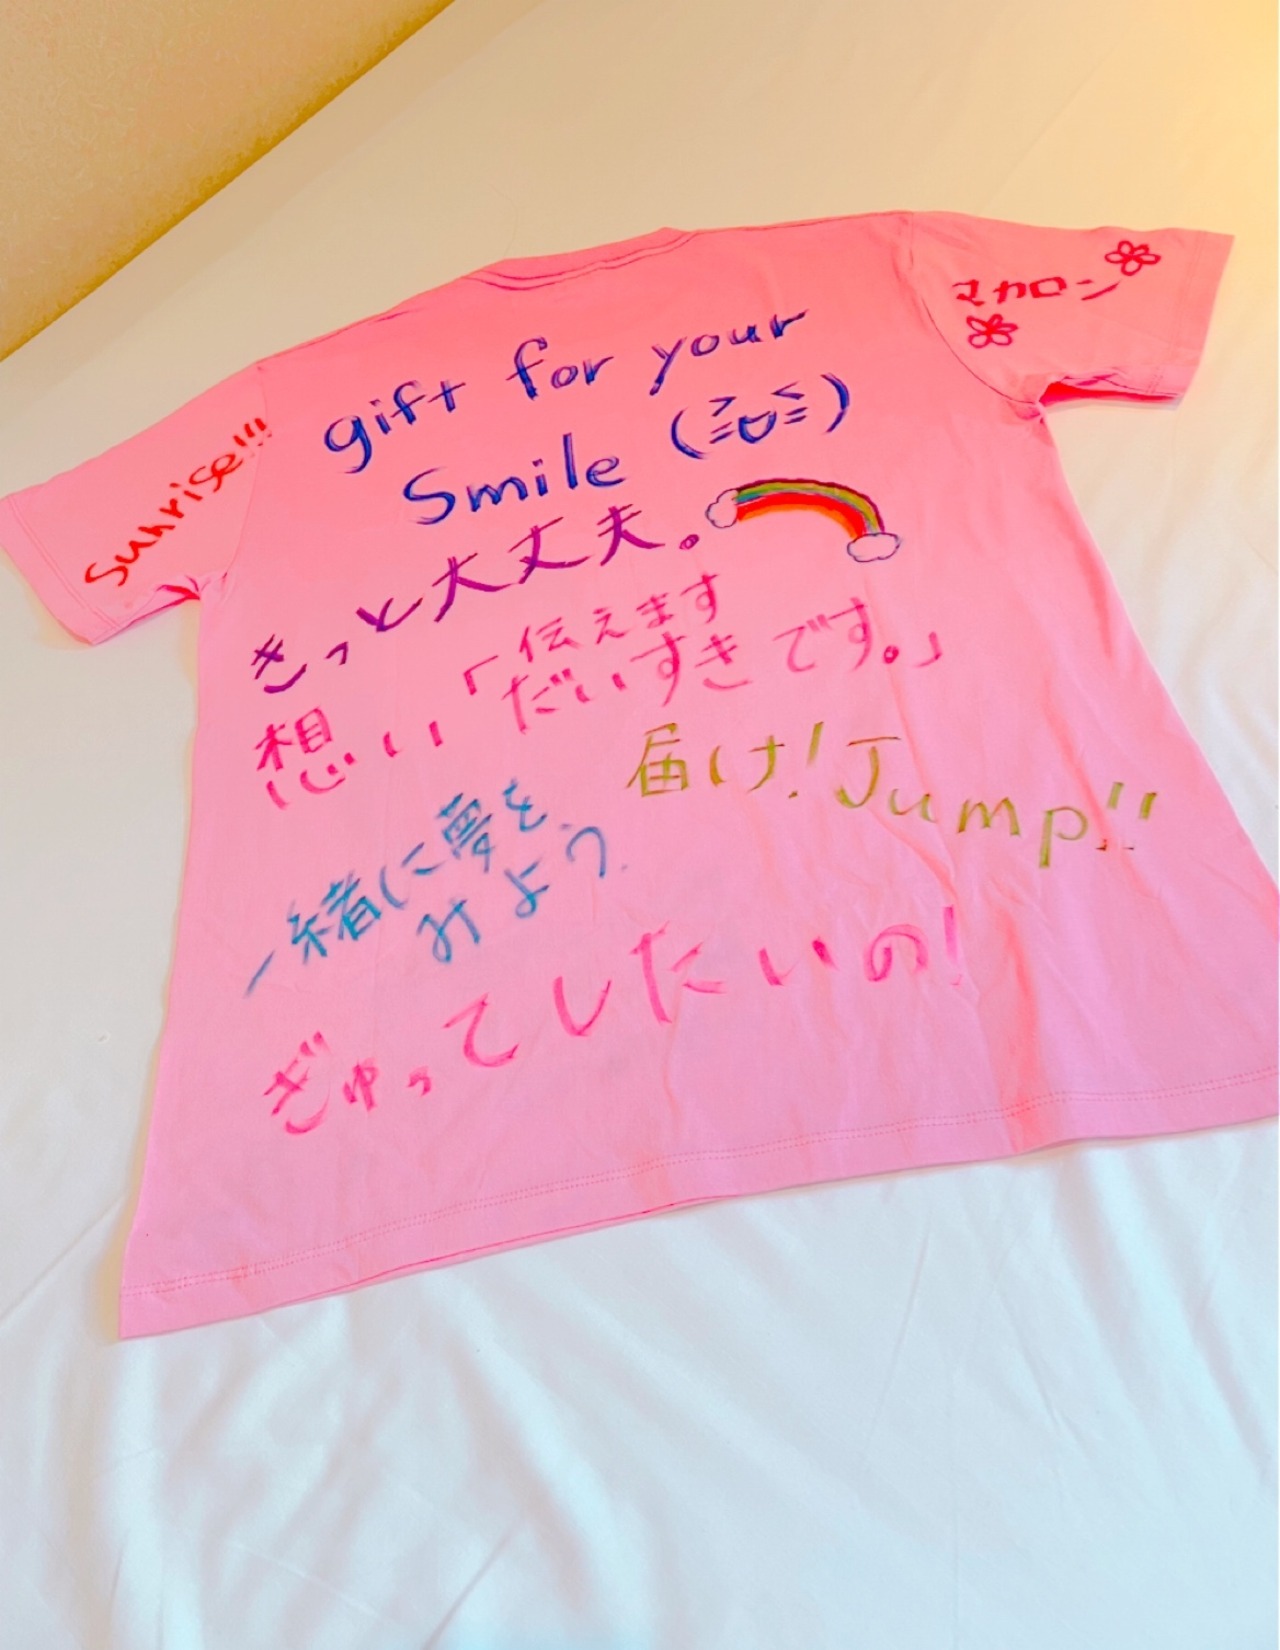 Sunrise!!!
マカロン
gift for your
Smile (≧∪≦)
きっと大丈夫。
想い「伝えます
だいすきです。」
届け!Jump!!
一緒に夢を
みよう.
ぎゅってしたいの!